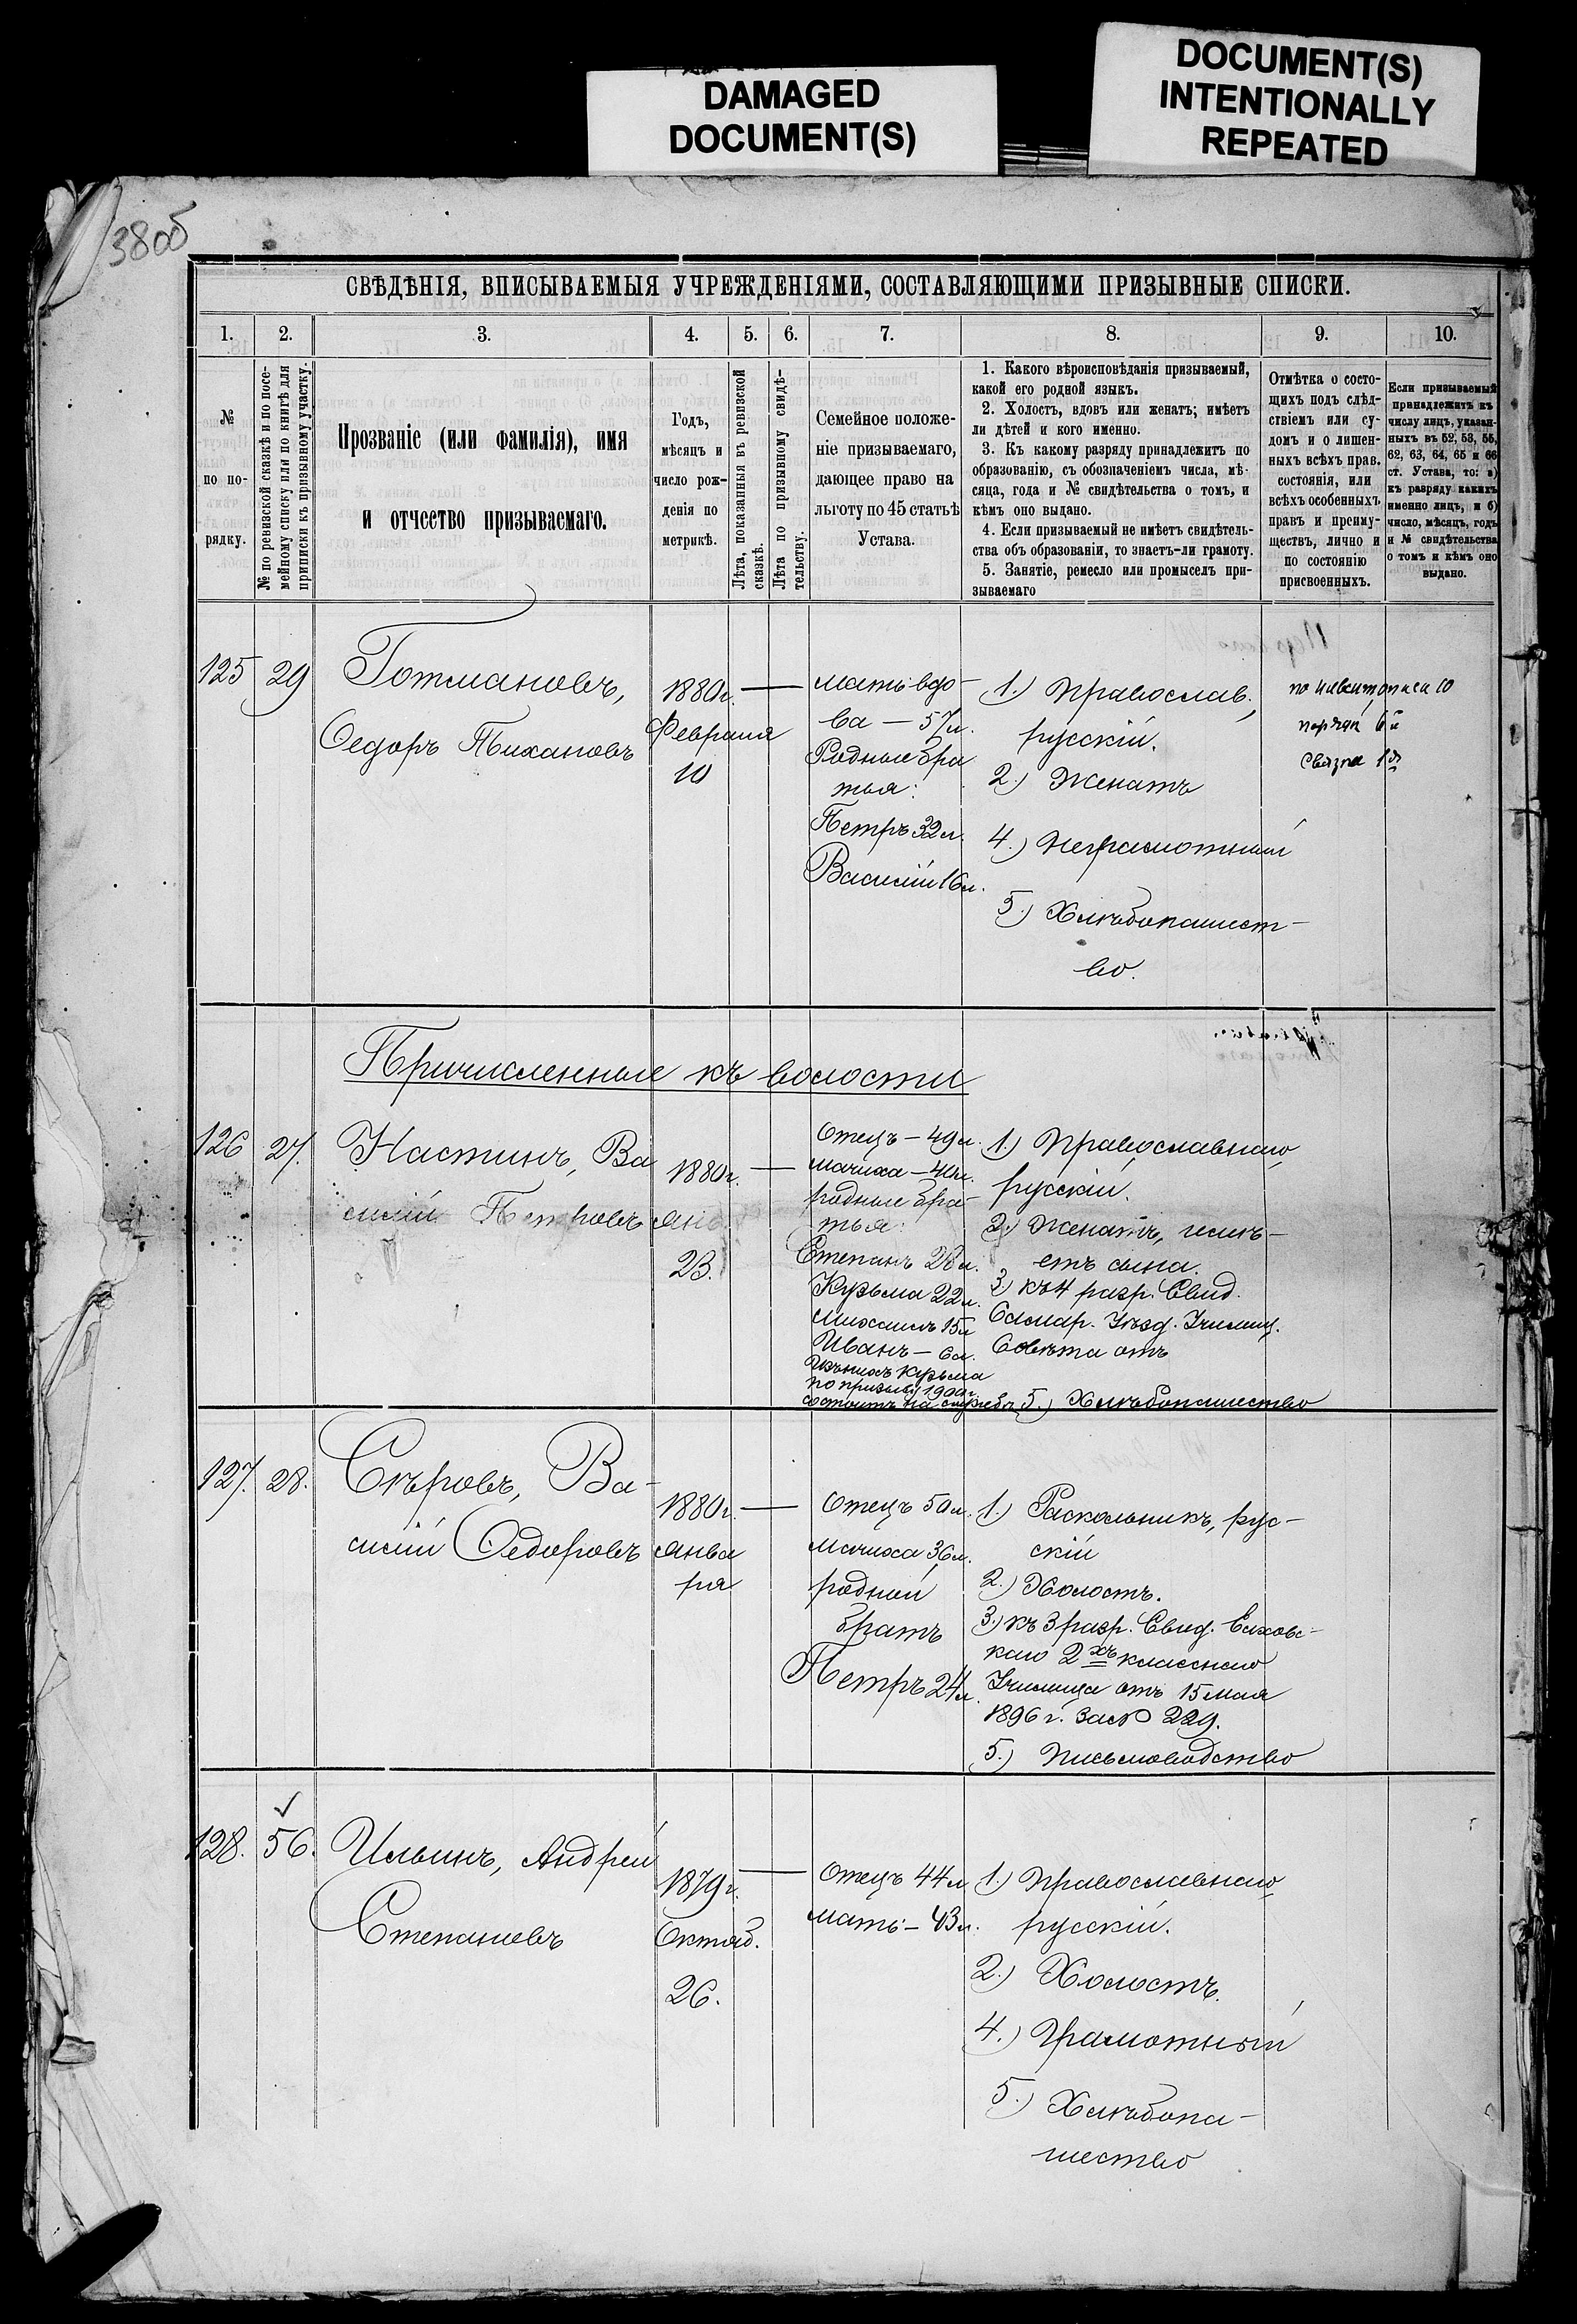 DAMAGED
DOCUMENT(S)
DOCUMENT(S)
INTENTIONALLY
REPEATED
38об
СВѢДѢНІЯ, ВПИСЫВАЕМЫЯ УЧРЕЖДЕНІЯМИ, СОСТАВЛЯЮЩИМИ ПРИЗЫВНЫЕ СПИСКИ.
1. 2. 3. 4. 5. 6. 7. 8. 9. 10.
№
по по-
рядку.
№ по ревизской сказкѣ и по посе-
мейному списку или по книгѣ для
приписки къ призывному участку.
Прозваніе (или фамилія), имя
и отчество призываемаго.
Годъ,
мѣсяцъ и
число рож-
денія по
метрикѣ.
Лѣта, показанныя въ ревизской
сказкѣ.
Лѣта по призывному свидѣ-
тельству.
Семейное положе-
ніе призываемаго,
дающее право на
льготу по 45 статьѣ
Устава.
1. Какого вѣроисповѣданія призываемый,
какой его родной языкъ.
2. Холостъ, вдовъ или женатъ; имѣетъ
ли дѣтей и кого именно.
3. Къ какому разряду принадлежитъ по
образованію, съ обозначеніемъ числа, мѣ-
сяца, года и № свидѣтельства о томъ, и
кѣмъ оно выдано.
4. Если призываемый не имѣетъ свидѣтель-
ства объ образованіи, то знаетъ-ли грамоту.
5. Занятіе, ремесло или промыселъ при-
зываемаго
Отмѣтка о состо-
ящихъ подъ слѣд-
ствіемъ или су-
домъ и о лишен-
ныхъ всѣхъ прав.
состоянія, или
всѣхъ особенныхъ
правъ и преиму-
ществъ, лично и
по состоянію
присвоенныхъ.
Если призываемый
принадлежитъ къ
числу лицъ, указан-
ныхъ въ 52, 53, 55,
62, 63, 64, 65 и 66
ст. Устава, то: а)
къ разряду какихъ
именно лицъ, и б)
число, мѣсяцъ, годъ
и № свидѣтельства
о томъ и кѣмъ оно
выдано.
125 29
Готмановъ,
Ѳедоръ Тихановъ
1880г.
Февраля
10
мать вдо-
ва — 57л.
Родные бра
тья:
Петръ 32л.
Василій 16л.
1.) Православ.,
русскій.
2.) Женатъ
4.) Неграмотный
5.) Хлѣбопашест-
во.
Причисленные къ волости
126 27.
Настинъ, Ва
силій Петровъ
1880г.
Янв
23.
Отецъ — 49л.
Мачиха — 40л.
родные бра-
тья:
Степанъ 28л.
Кузьма 22л.
Михаилъ 15л
Иванъ — 6л.
Изъ нихъ Кузьма
по призыву 1900г.
состоитъ на службѣ
1.) Православнаго,
русскій.
2.) Женатъ, имѣ-
етъ сына.
3.) къ 4 разр. Свид.
Самар. Уѣзд. Училищ.
Совѣта отъ
5.) Хлѣбопашество
127. 28.
Сѣровъ, Ва-
силій Ѳедоровъ
1880г.
Янва
ря
Отецъ 50л.
Мачиха 36л.
родной
братъ
Петръ 24л.
1.) Раскольникъ, рус-
скій
2.) Холостъ.
3.) къ 3 разр. Свид. Елховс-
каго 2хъ класснаго
Училища отъ 15 мая
1896 г. за № 229.
5.) Письмоводство
128. 56.
Ильинъ, Андрей
Степановъ
1879г.
Октяб.
26.
Отецъ 44л
Мать — 43л.
1.) Православнаго,
русскій.
2.) Холостъ.
4.) Грамотный
5.) Хлѣбопа-
шество